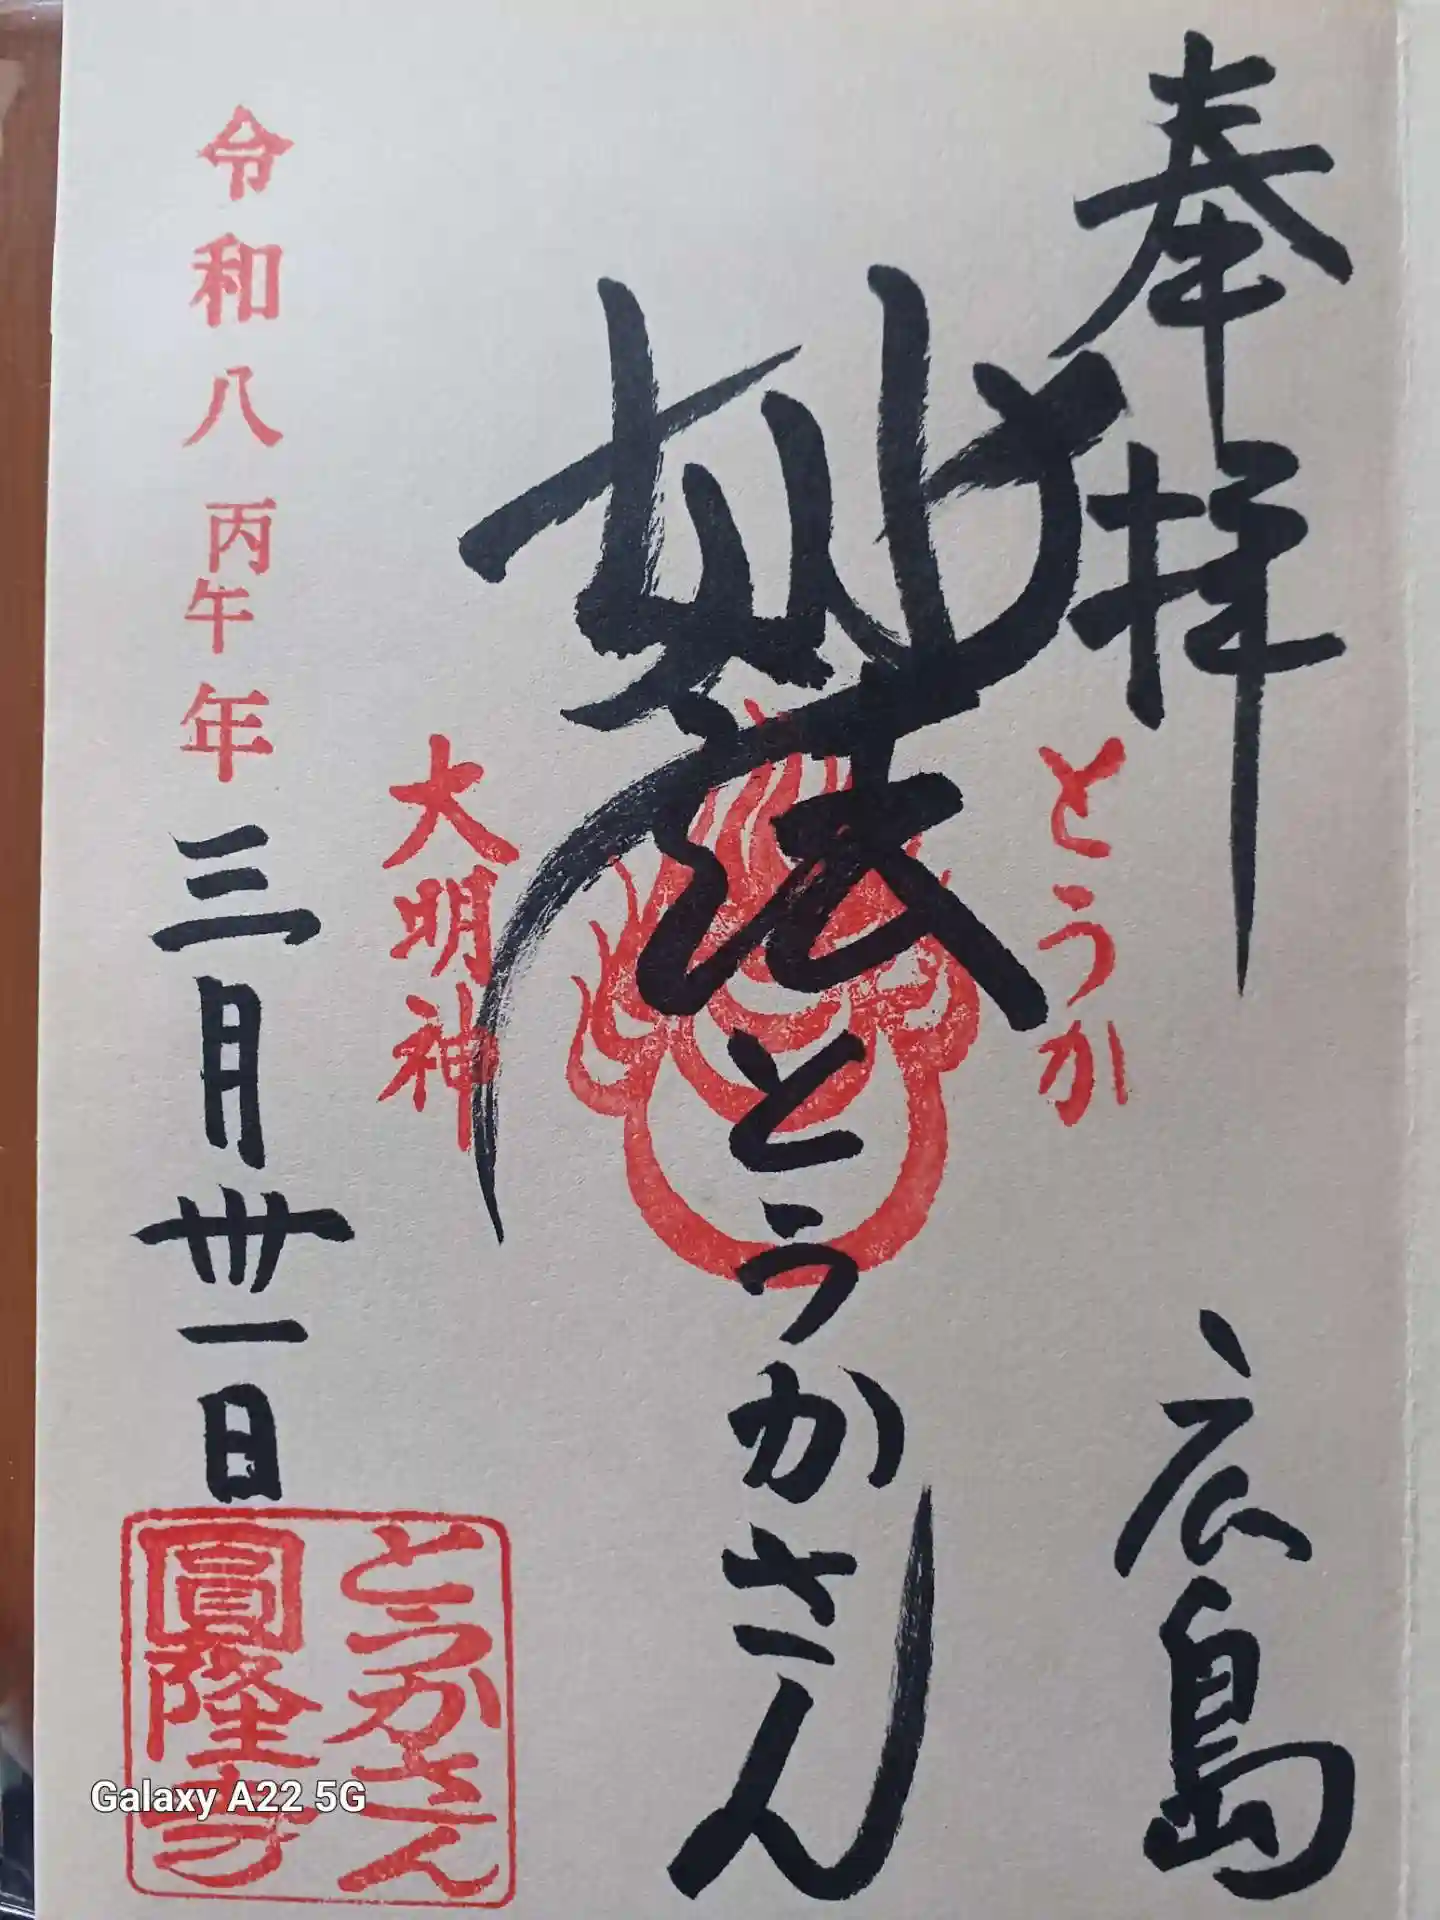 奉拝
広島
とうか
妙法
とうかさん
大明神
令和八丙午年三月卅一日
とうかさん
圓隆寺
Galaxy A22 5G